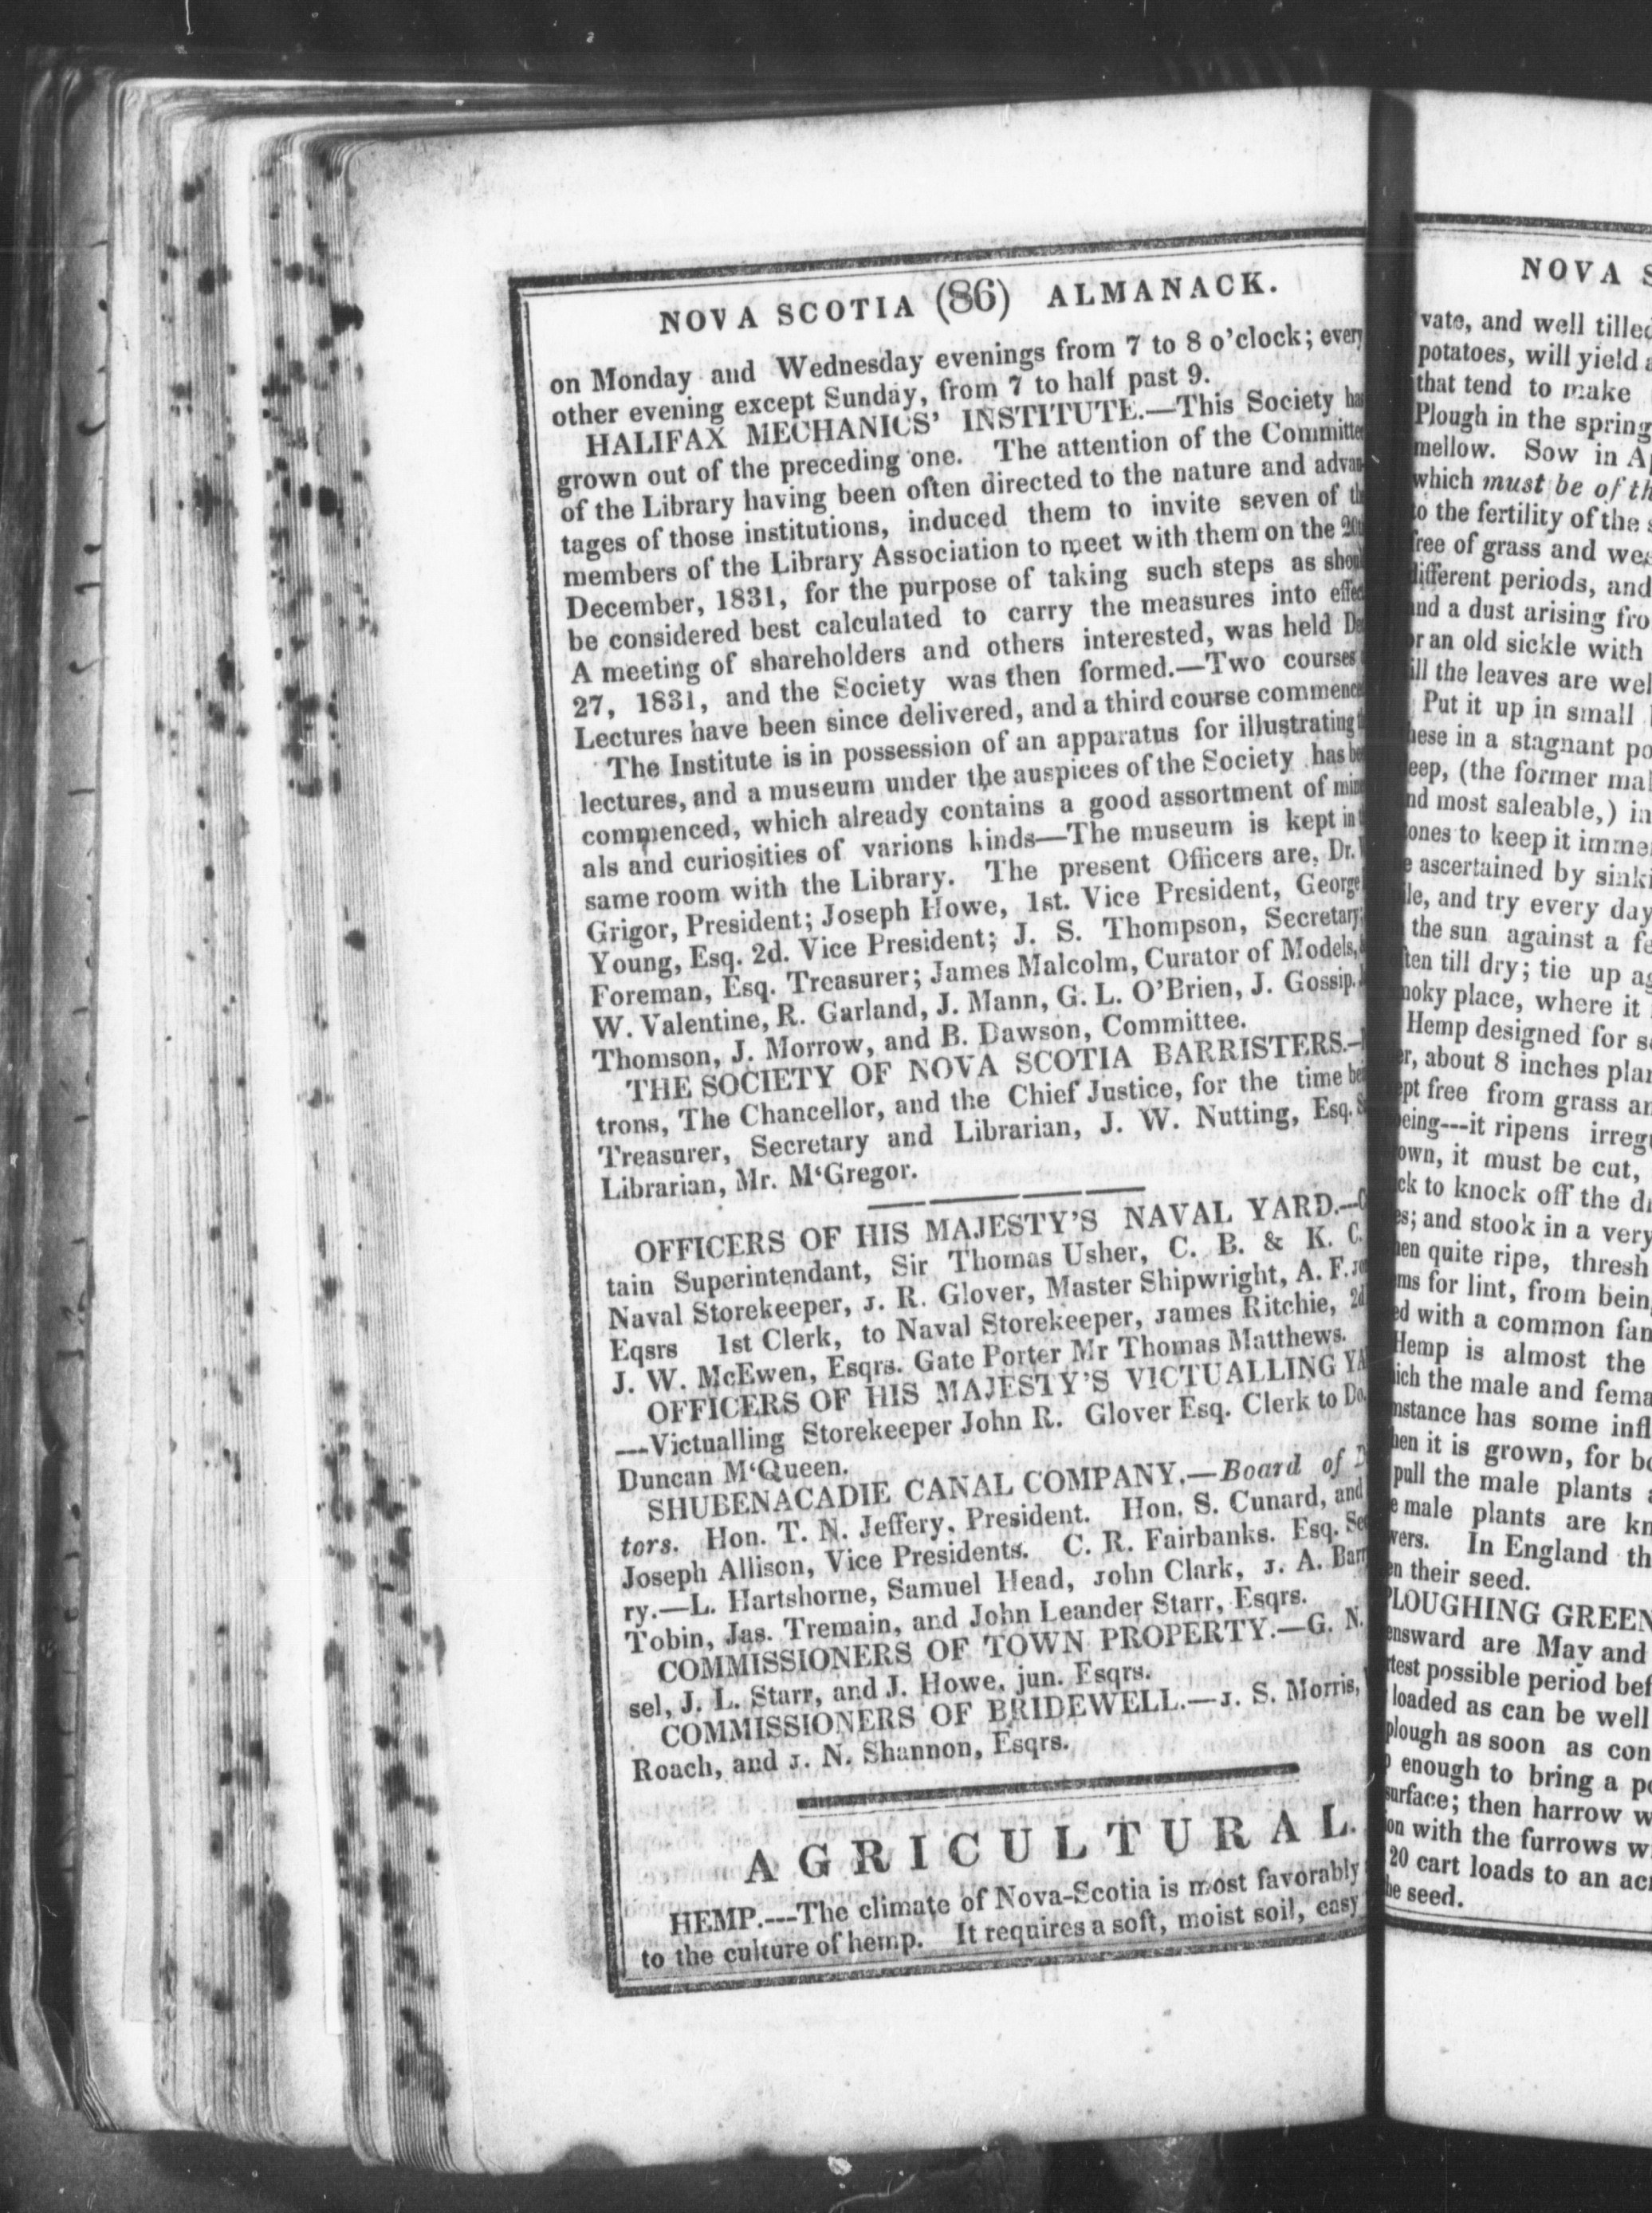 NOVA SCOTIA (86) ALMANACK.
on Monday and Wednesday evenings from 7 to 8 o'clock; every
other evening except Sunday, from 7 to half past 9.
HALIFAX MECHANICS' INSTITUTE.—This Society has
grown out of the preceding one. The attention of the Committee
of the Library having been often directed to the nature and advan-
tages of those institutions, induced them to invite seven of the
members of the Library Association to meet with them on the 20th
December, 1831, for the purpose of taking such steps as should
be considered best calculated to carry the measures into effect
A meeting of shareholders and others interested, was held Dec
27, 1831, and the Society was then formed.—Two courses
Lectures have been since delivered, and a third course commenced
The Institute is in possession of an apparatus for illustrating
lectures, and a museum under the auspices of the Society has be
commenced, which already contains a good assortment of mine
als and curiosities of varions kinds—The museum is kept in
same room with the Library. The present Officers are, Dr.
Grigor, President; Joseph Howe, 1st. Vice President, George
Young, Esq. 2d. Vice President; J. S. Thompson, Secretary;
Foreman, Esq. Treasurer; James Malcolm, Curator of Models,
W. Valentine, R. Garland, J. Mann, G. L. O'Brien, J. Gossip.
Thomson, J. Morrow, and B. Dawson, Committee.
THE SOCIETY OF NOVA SCOTIA BARRISTERS.—
trons, The Chancellor, and the Chief Justice, for the time bei
Treasurer, Secretary and Librarian, J. W. Nutting, Esq.
Librarian, Mr. M‘Gregor.
OFFICERS OF HIS MAJESTY'S NAVAL YARD.—C
tain Superintendant, Sir Thomas Usher, C. B. & K. C.
Naval Storekeeper, J. R. Glover, Master Shipwright, A. F.
Eqsrs 1st Clerk, to Naval Storekeeper, James Ritchie, 2d
J. W. McEwen, Esqrs. Gate Porter Mr Thomas Matthews.
OFFICERS OF HIS MAJESTY'S VICTUALLING YA
—Victualling Storekeeper John R. Glover Esq. Clerk to Do.
Duncan M‘Queen.
SHUBENACADIE CANAL COMPANY.—Board of D
tors. Hon. T. N. Jeffery, President. Hon. S. Cunard, and
Joseph Allison, Vice Presidents. C. R. Fairbanks. Esq. Sec
ry.—L. Hartshorne, Samuel Head, John Clark, J. A. Barr
Tobin, Jas. Tremain, and John Leander Starr, Esqrs.
COMMISSIONERS OF TOWN PROPERTY.—G. N.
sel, J. L. Starr, and J. Howe, jun. Esqrs.
COMMISSIONERS OF BRIDEWELL.—J. S. Morris,
Roach, and J. N. Shannon, Esqrs.
AGRICULTURAL.
HEMP.---The climate of Nova-Scotia is most favorably
to the culture of hemp. It requires a soft, moist soil, easy
NOVA S
vate, and well tilled
potatoes, will yield a
that tend to make
Plough in the spring
mellow. Sow in Ap
which must be of th
to the fertility of the s
free of grass and wee
different periods, and
and a dust arising fro
or an old sickle with
till the leaves are wel
Put it up in small
hese in a stagnant po
eep, (the former mak
nd most saleable,) in
tones to keep it immer
e ascertained by sinki
ile, and try every day
the sun against a fe
ften till dry; tie up ag
moky place, where it
Hemp designed for se
er, about 8 inches plan
ept free from grass an
being---it ripens irregu
own, it must be cut,
ck to knock off the d
es; and stook in a very
hen quite ripe, thresh
ms for lint, from bein
ed with a common fan
Hemp is almost the
ich the male and fema
nstance has some infl
hen it is grown, for bo
pull the male plants a
e male plants are kn
wers. In England th
en their seed.
PLOUGHING GREEN
ensward are May and
rtest possible period bef
loaded as can be well
plough as soon as con
p enough to bring a po
surface; then harrow w
on with the furrows w
20 cart loads to an acr
he seed.